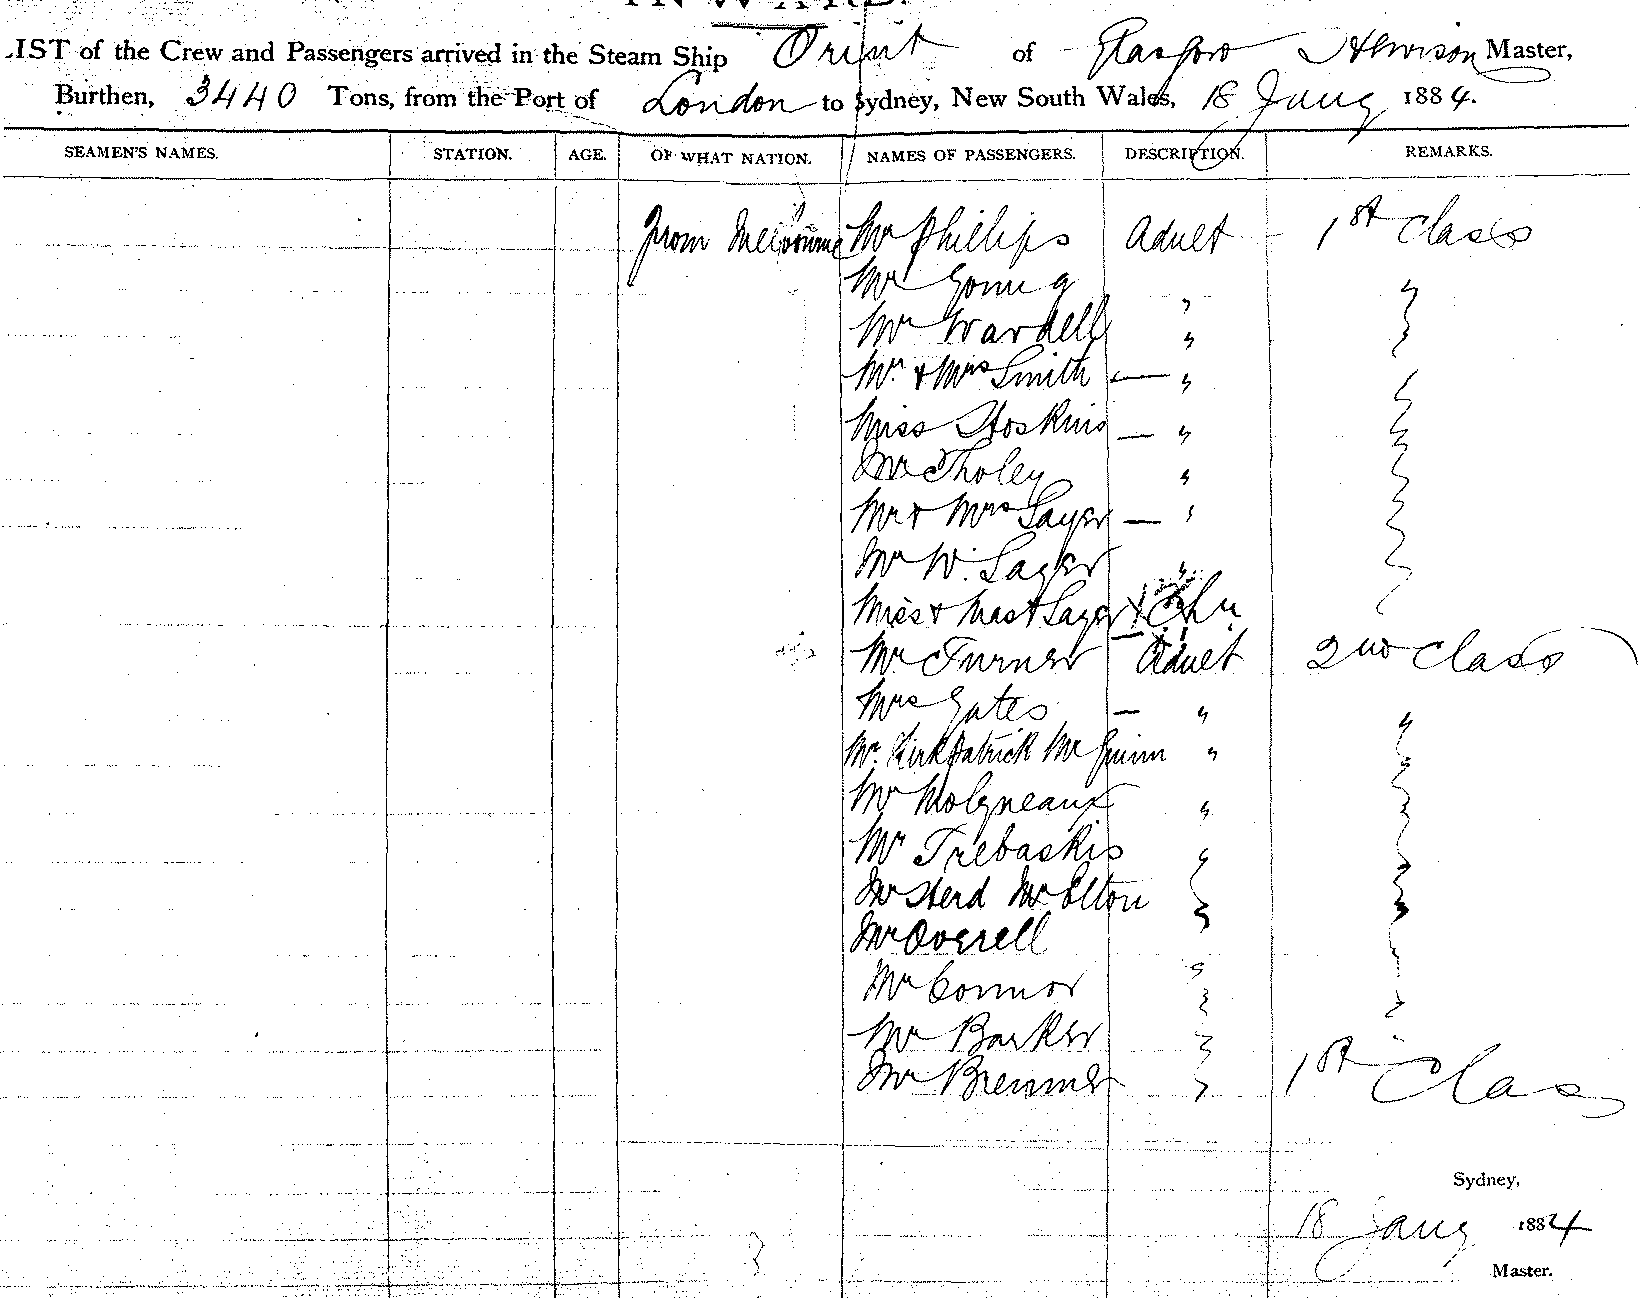 INWARD.
LIST of the Crew and Passengers arrived in the Steam Ship Orient of Glasgow Master,
Burthen, 3440 Tons, from the Port of London to Sydney, New South Wales, 18 Jany 1884.
SEAMEN'S NAMES. STATION. AGE. OF WHAT NATION. NAMES OF PASSENGERS. DESCRIPTION. REMARKS.
From Melbourne Mr Phillips Adult 1st Class
Mr "
Mr Wardell "
Mr & Mrs Smith — "
Miss Hoskins — "
Mr Tholey "
Mr & Mrs Sayer — "
Mr W. Sayer "
Miss & Mast Sayer
Mr Turner Adult 2nd Class
Mrs Gates — " "
Mr. Kirkpatrick Mr Guinn "
Mr Molyneaux "
Mr Trebaskis "
Mr Herd Mr Elton
Mr Overell
Mr Connor
Mr Barker
Mr Bremner 1st Class
Sydney,
18 Jany 1884
Master.